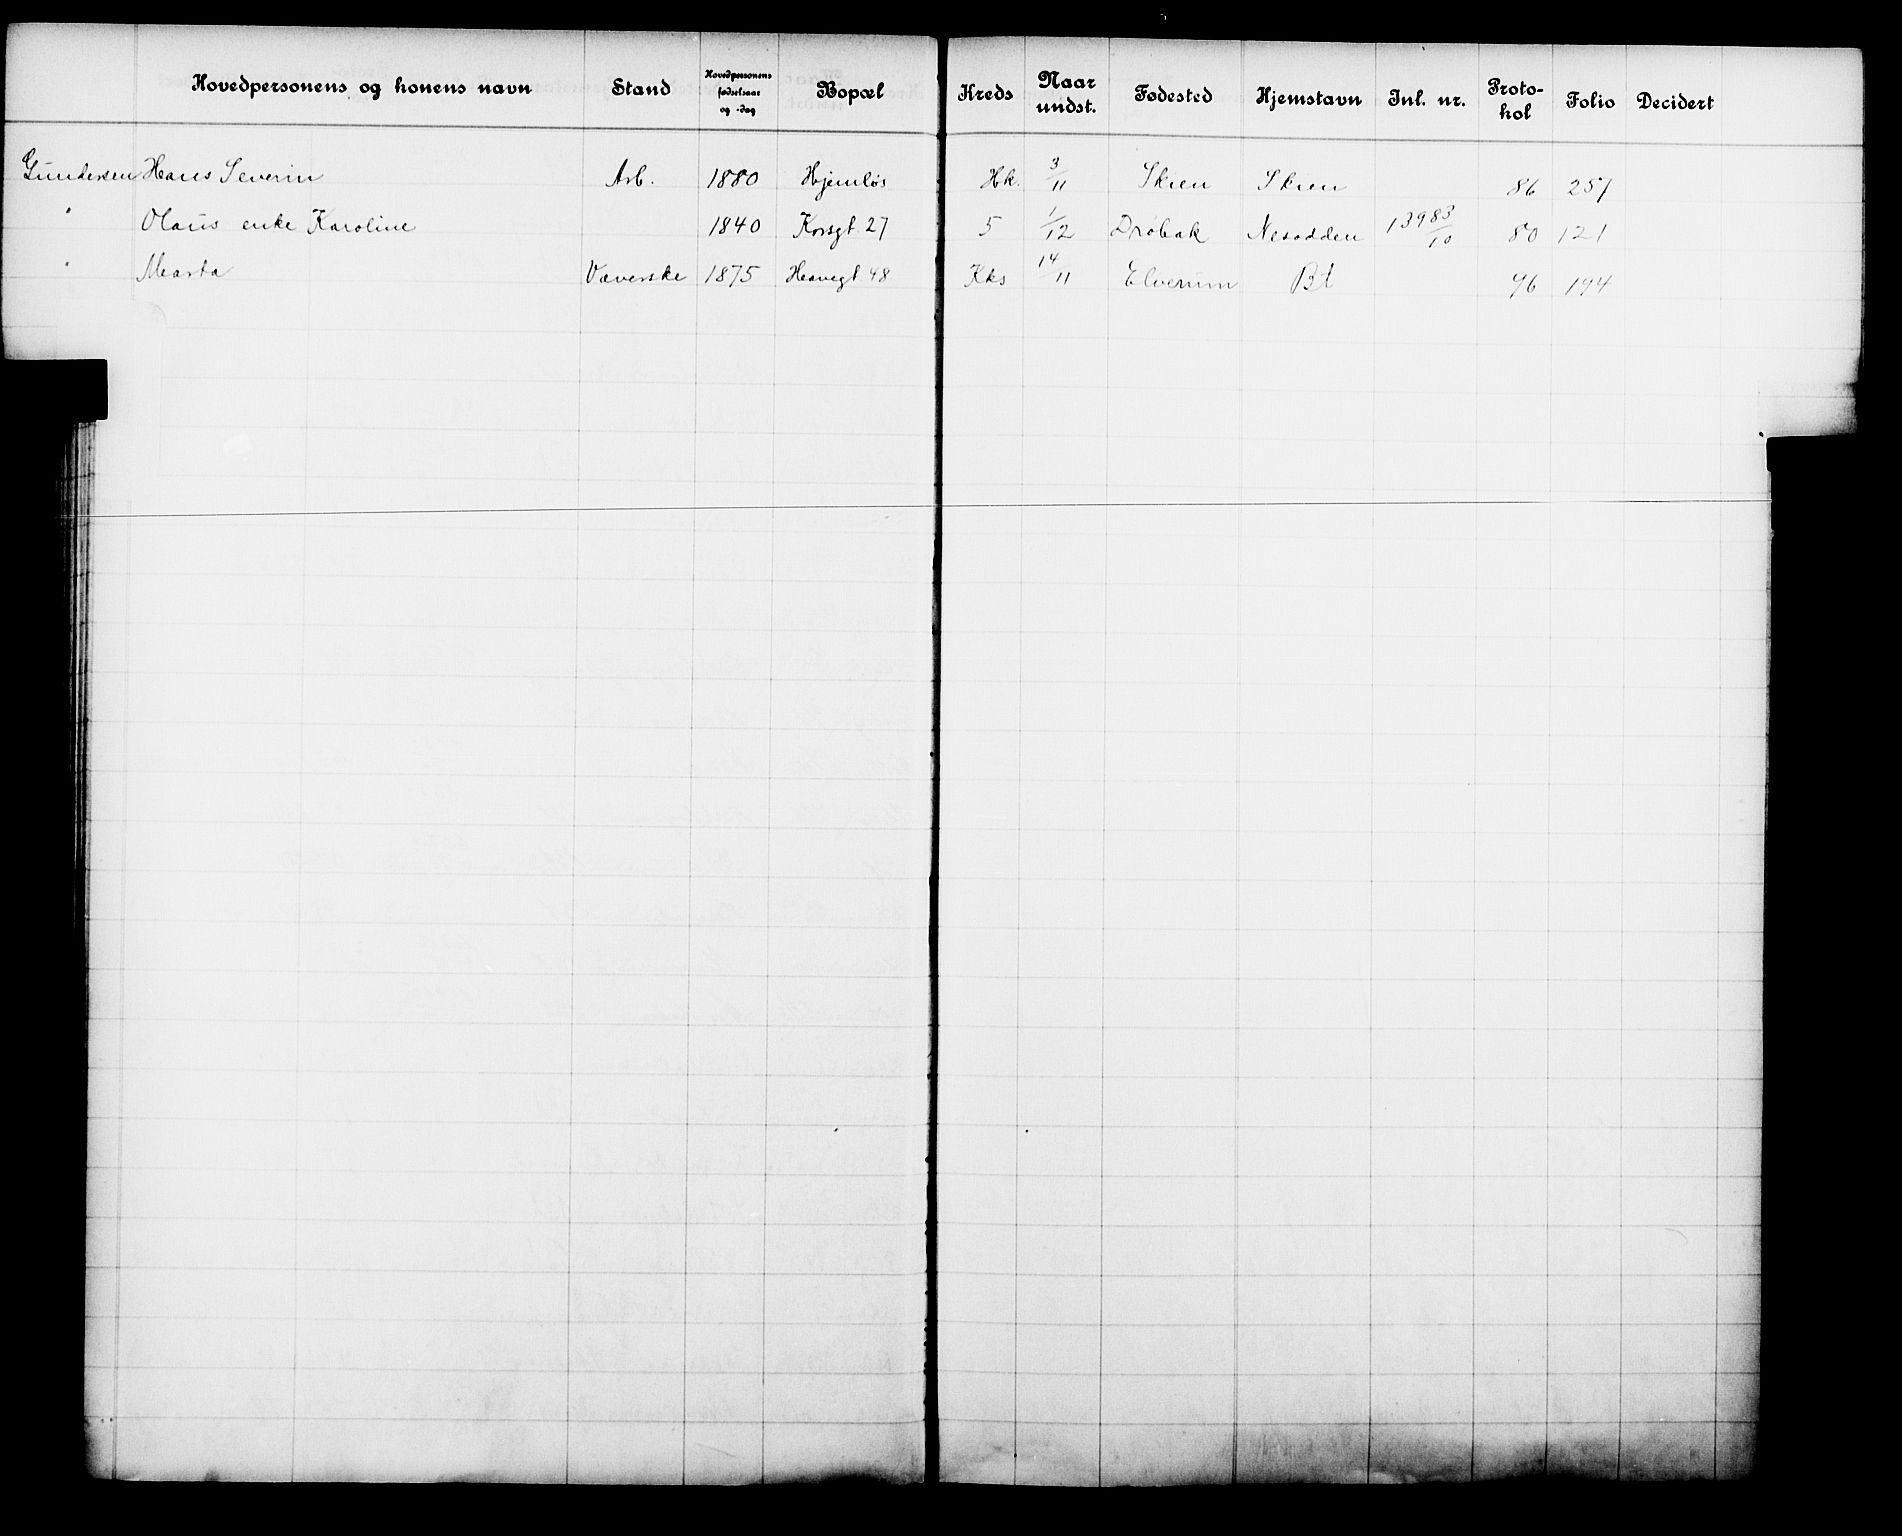 Hovedpersonens og konens navn Stand Hovedpersonens fødselsaar og -dag Bopæl Kreds Naar undst. Fødested Hjemstavn Inl. nr. Proto-kol Folio Decidert
Gundersen Hans Severin Arb. 1880 Hjemløs Hk. 3/11 Skien Skien 86 257
" Olaus enke Karoline 1840 Korsgt. 27 5 1/12 Drøbak Nesodden 13983/10 80 121
" Marta Væverske 1875 Heavegt 48 Kks 14/11 Elverum Bt 46 194